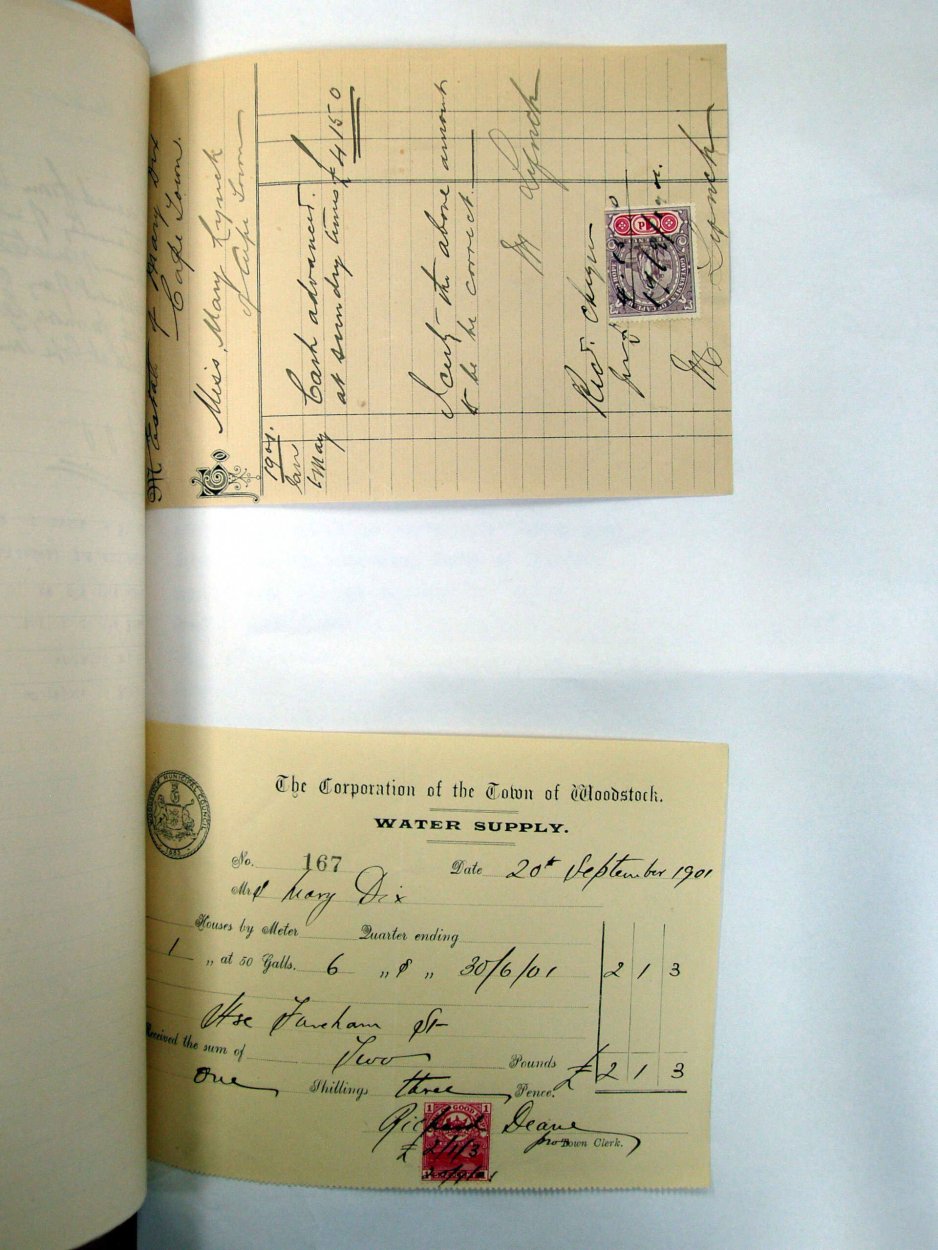 Estate of Mary Dix
Cape Town.
Miss Mary Lynch
of Cape Town
1901.
Jan
to May
Cash advanced
at sundry times £ 4 15 0
I certify the above amount
to be correct
M Lynch
Recd. cheque
for
M Lynch
WOODSTOCK MUNICIPAL COUNCIL
The Corporation of the Town of Woodstock.
WATER SUPPLY.
No. 167 Date 20th September 1901
Mrs Mary Dix
Houses by Meter Quarter ending
1 „ at 50 Galls. 6 „ „ 30/6/01 2 1 3
Hse Fareham St
Received the sum of Two Pounds £ 2 1 3
One Shillings three Pence.
Richard Deane
pro Town Clerk.
1 GOOD 1
£ 2/1/3
20/9/01